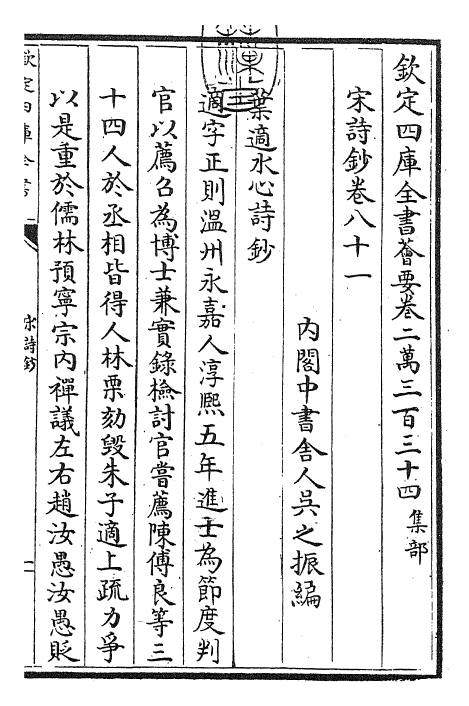 欽定四庫全書薈要卷二萬三百三十四集部
宋詩鈔卷八十一
内閣中書舍人吳之振編
葉適水心詩鈔
適字正則溫州永嘉人淳熙五年進士為節度判
官以薦召為博士兼實錄檢討官嘗薦陳傅良等三
十四人於丞相皆得人林栗劾毁朱子適上疏力爭
以是重於儒林預寧宗内禪議左右趙汝愚汝愚貶
欽定四庫全書
宋詩鈔